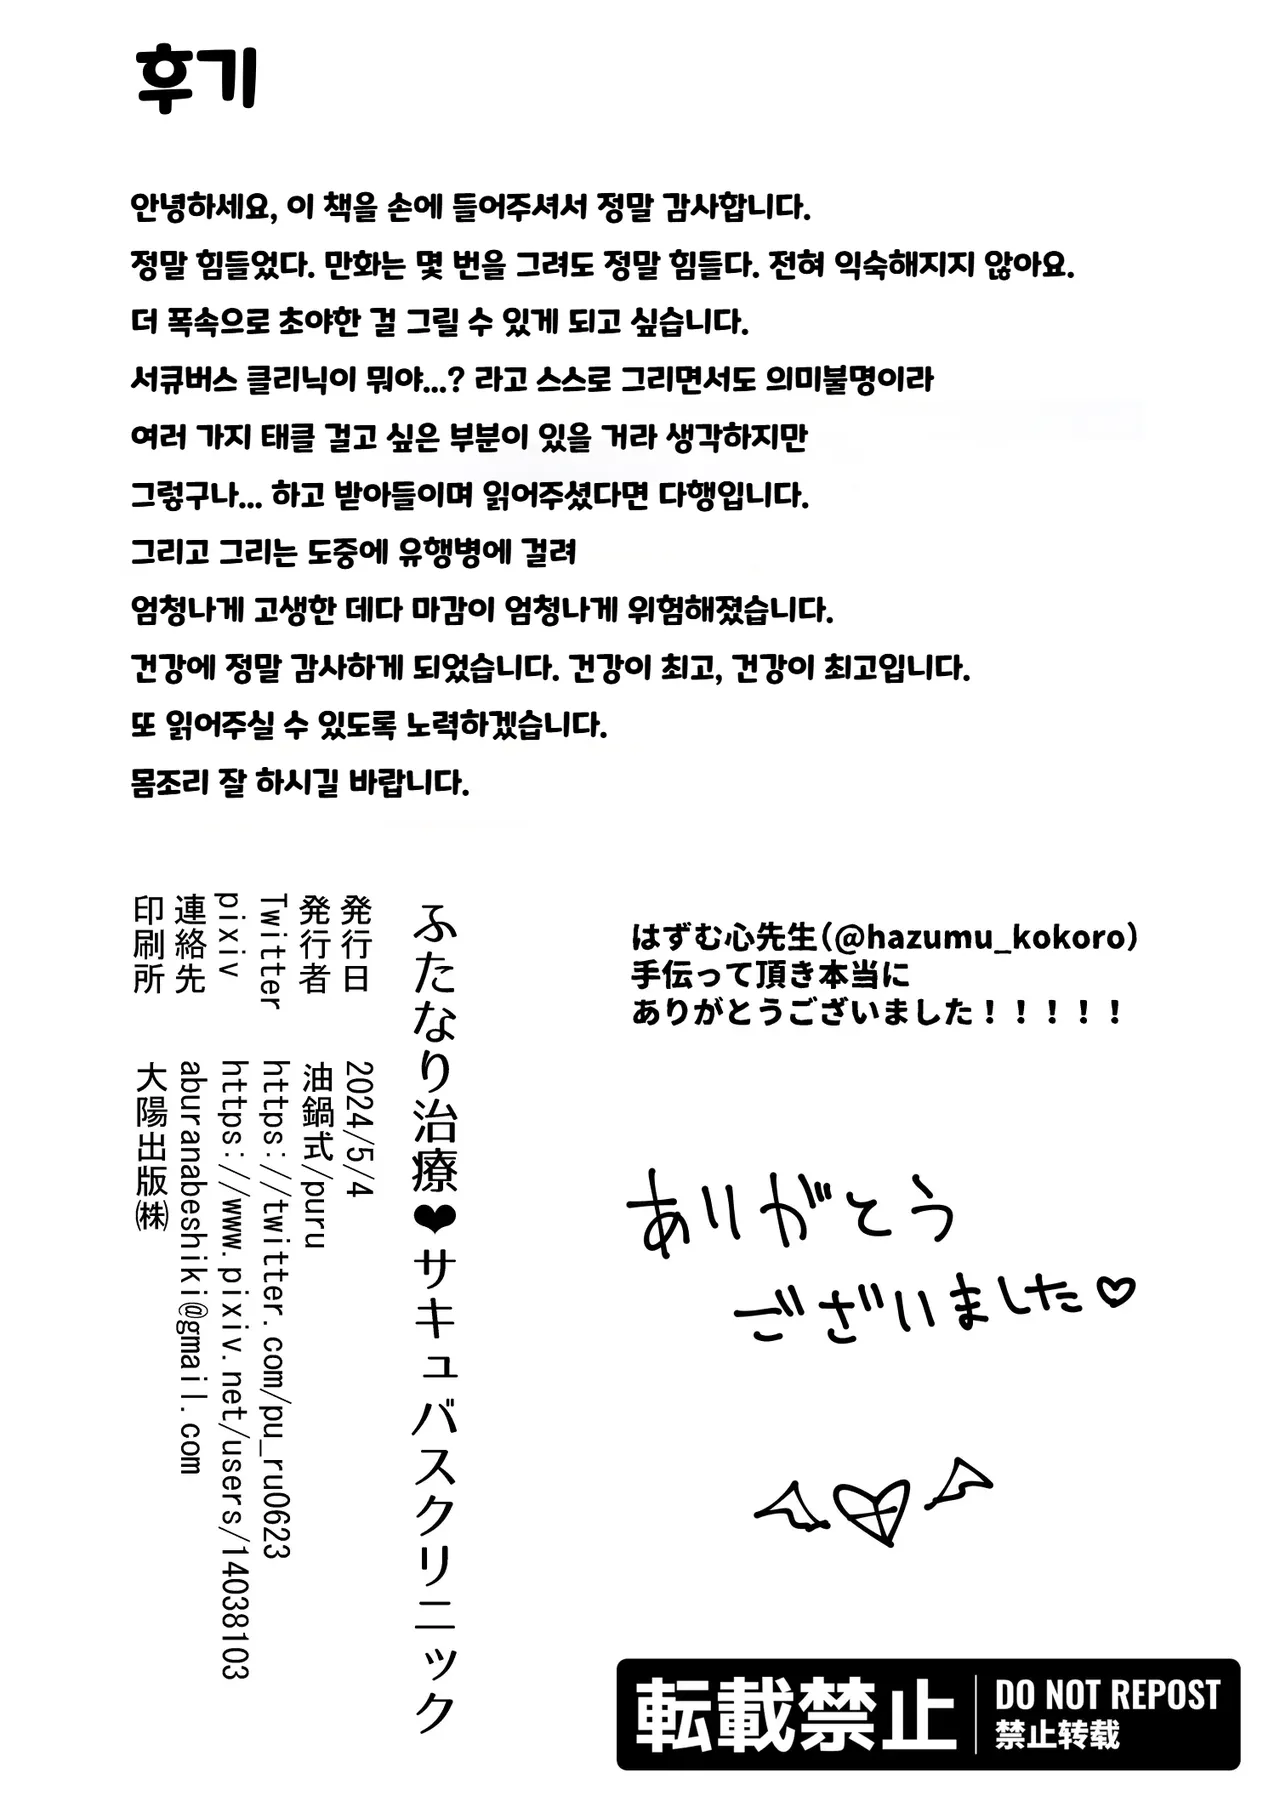 후기
안녕하세요, 이 책을 손에 들어주셔서 정말 감사합니다.
정말 힘들었다. 만화는 몇 번을 그려도 정말 힘들다. 전혀 익숙해지지 않아요.
더 폭속으로 초야한 걸 그릴 수 있게 되고 싶습니다.
서큐버스 클리닉이 뭐야...? 라고 스스로 그리면서도 의미불명이라
여러 가지 태클 걸고 싶은 부분이 있을 거라 생각하지만
그렇구나... 하고 받아들이며 읽어주셨다면 다행입니다.
그리고 그리는 도중에 유행병에 걸려
엄청나게 고생한 데다 마감이 엄청나게 위험해졌습니다.
건강에 정말 감사하게 되었습니다. 건강이 최고, 건강이 최고입니다.
또 읽어주실 수 있도록 노력하겠습니다.
몸조리 잘 하시길 바랍니다.
はずむ心先生(@hazumu_kokoro)
手伝って頂き本当に
ありがとうございました！！！！！
ありがとう
ございました♡
ふたなり治療❤サキュバスクリニック
発行日 2024/5/4
発行者 油鍋式/puru
Twitter https://twitter.com/pu_ru0623
pixiv https://www.pixiv.net/users/14038103
連絡先 aburanabeshiki@gmail.com
印刷所 大陽出版㈱
転載禁止
DO NOT REPOST
禁止转载